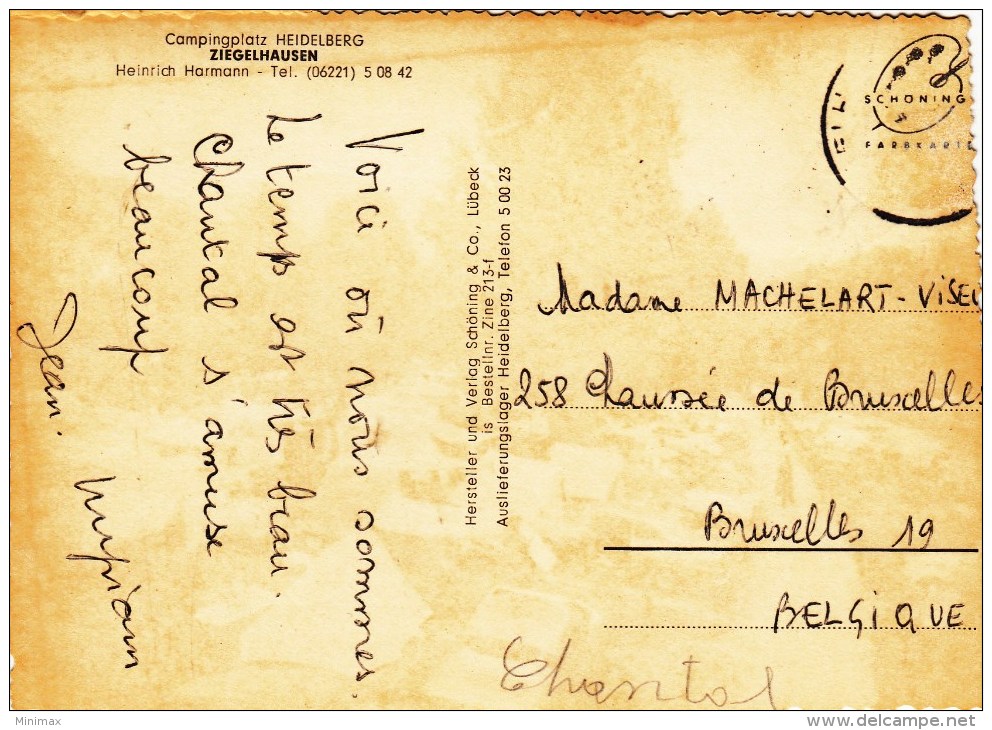 Campingplatz HEIDELBERG
ZIEGELHAUSEN
Heinrich Harmann - Tel. (06221) 5 08 42
SCHÖNING
FARBKARTE
Voici où nous sommes.
Le temps est très beau.
Chantal s'amuse
beaucoup
Jean.
Hersteller und Verlag Schöning & Co., Lübeck
is Bestellnr. Zine 213-f
Auslieferungslager Heidelberg, Telefon 5 00 23
Madame MACHELART-VISEU
258 Chaussée de Bruxelles
Bruxelles 19
BELGIQUE
Chantal
Minimax
www.delcampe.net